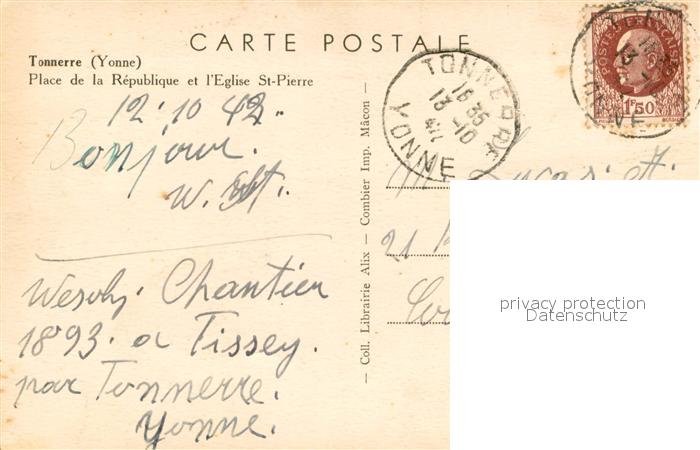 CARTE POSTALE
Tonnerre (Yonne)
Place de la République et l'Eglise St-Pierre
12.10 42.
Bonjour.
W.
Chantier
1893. a Tissey.
par Tonnerre.
Yonne.
— Coll. Librairie Alix — Combier Imp. Mâcon —
TONNERRE
16 35
13 -10
YONNE
POSTES FRANÇAISES
1F50
21
privacy protection
Datenschutz